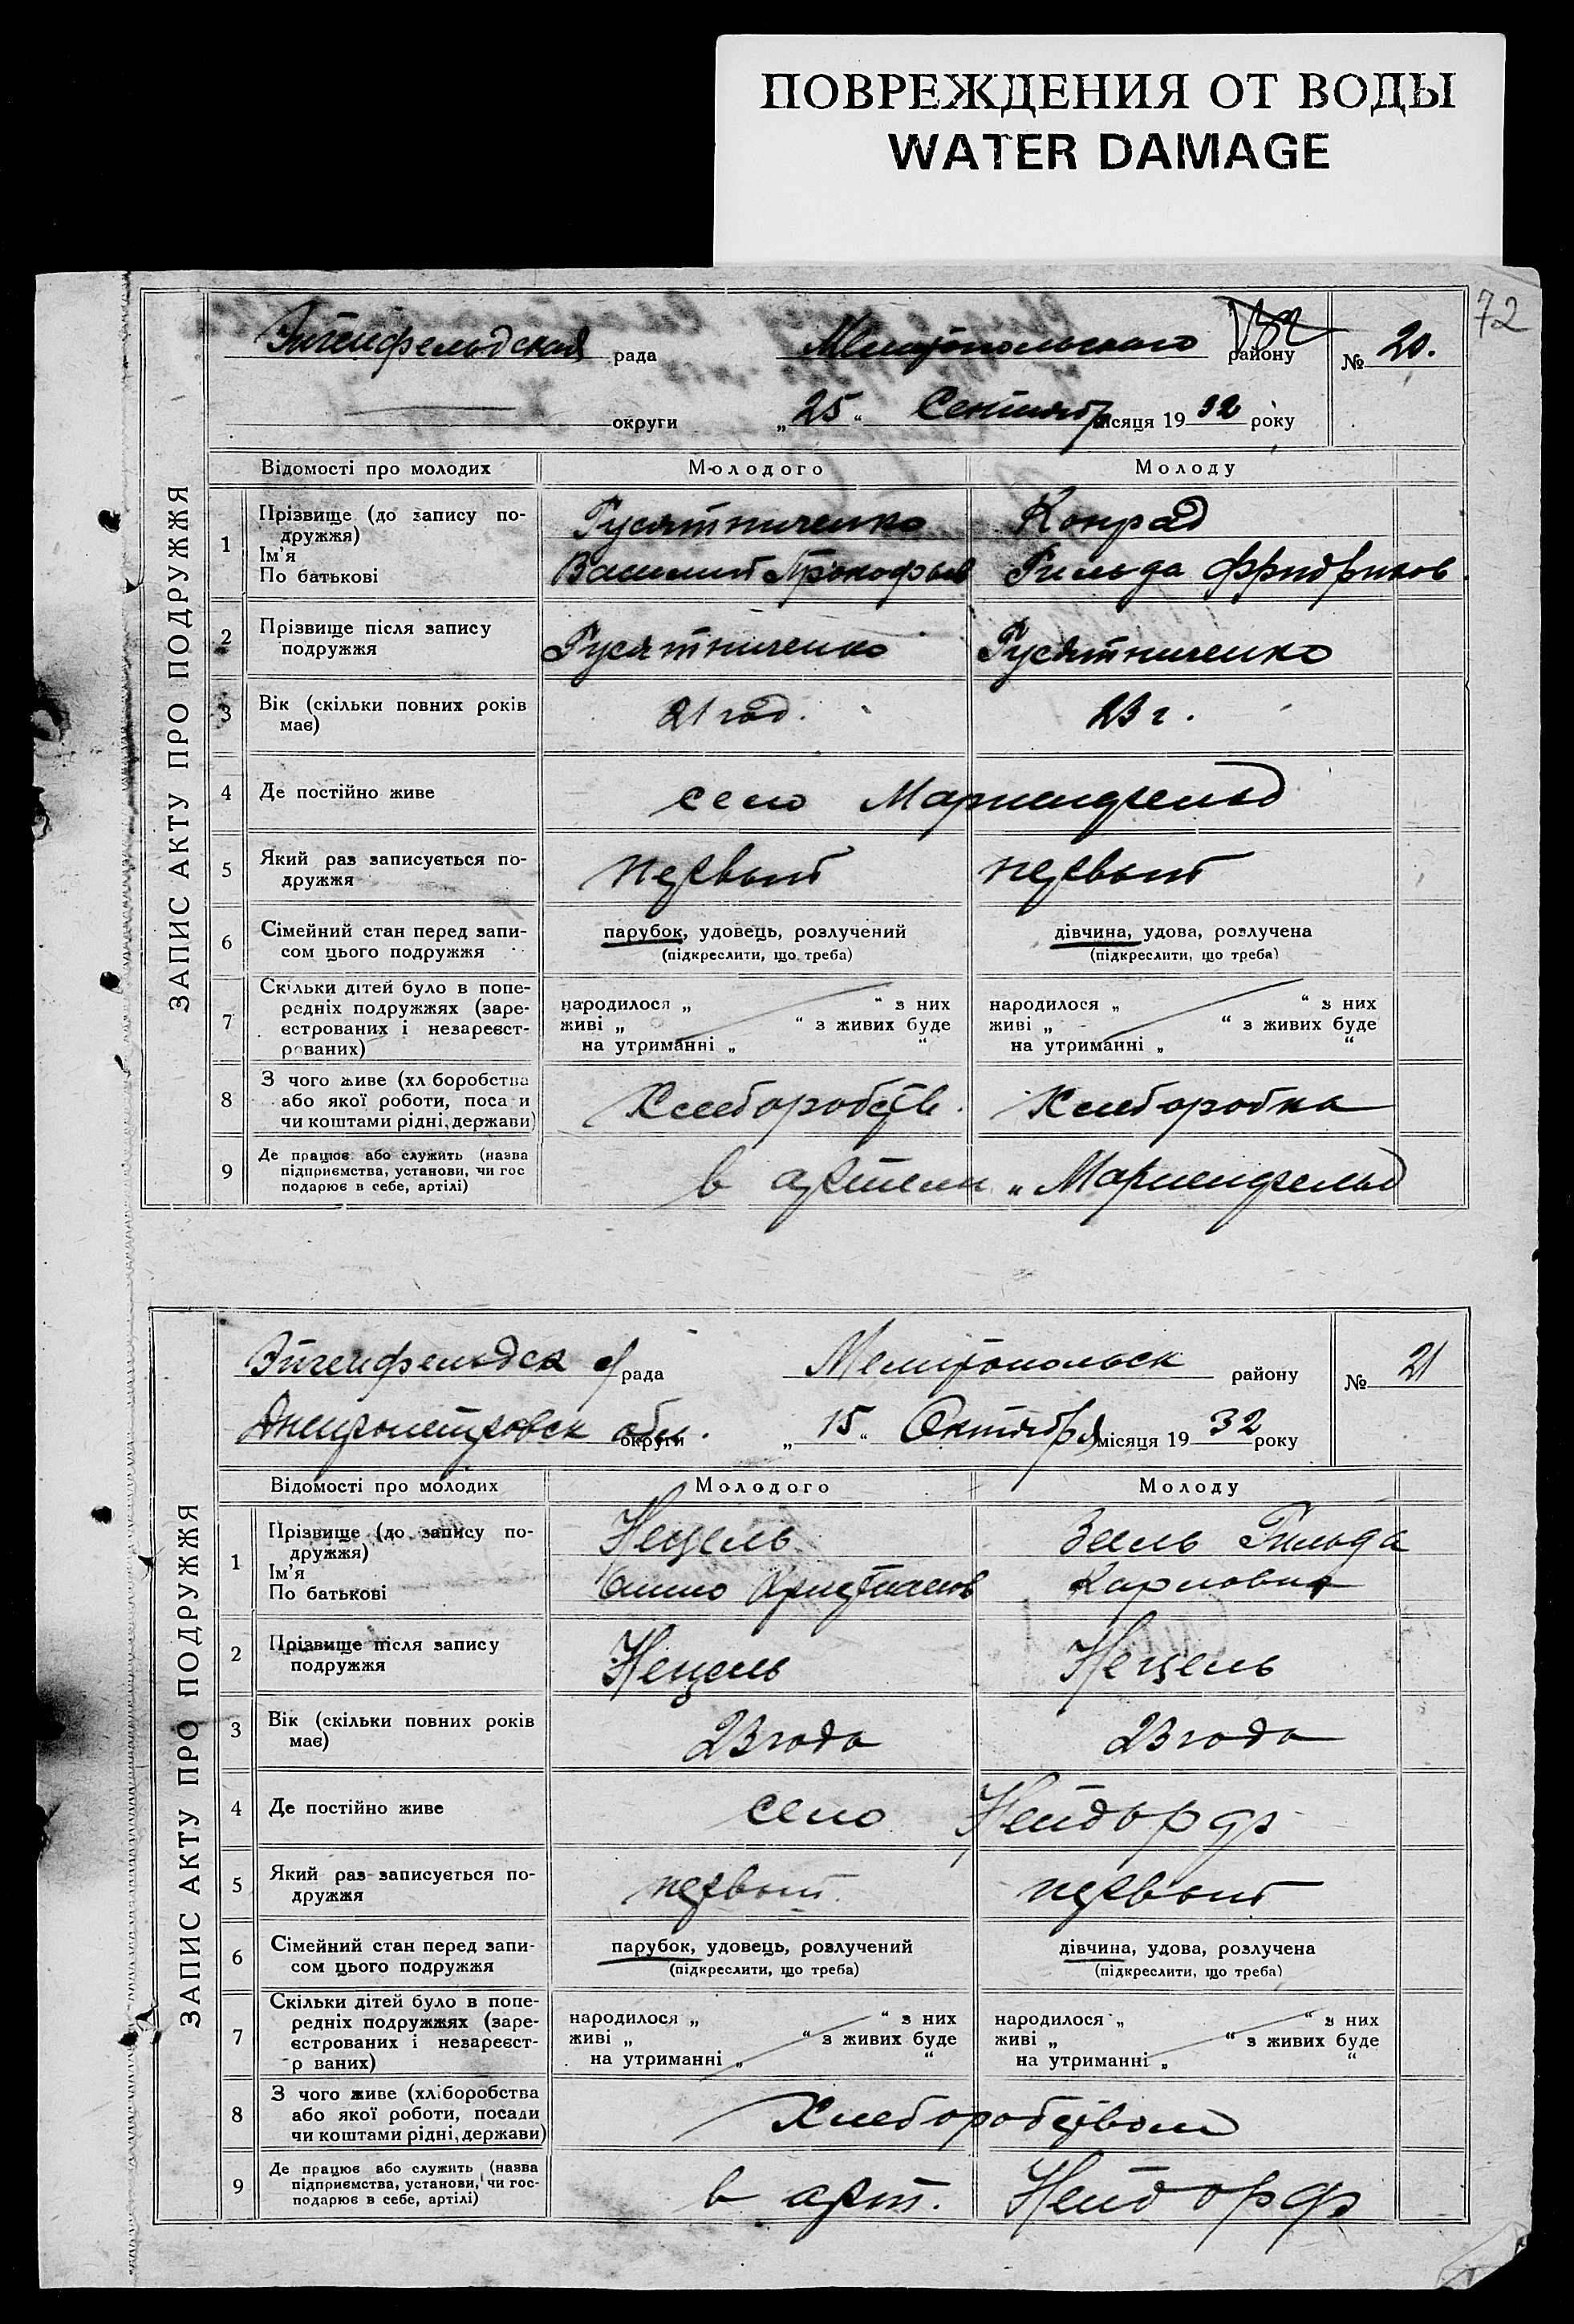 ПОВРЕЖДЕНИЯ ОТ ВОДЫ
WATER DAMAGE
72
ЗАПИС АКТУ ПРО ПОДРУЖЖЯ
Эйгенфельдская рада Мелитопольского району № 20.
округи „25“ Сентябр місяця 1932 року
Відомості про молодих Молодого Молоду
1 Прізвище (до запису по-
дружжя)
Ім'я
По батькові
Гусятниченко Конрад
Василий Прокофьев Гильда Фридрихов
2 Прізвище після запису
подружжя
Гусятниченко Гусятниченко
3 Вік (скільки повних років
має)
21 год. 23 г.
4 Де постійно живе село Мариенфельд
5 Який раз записується по-
дружжя
первый первый
6 Сімейний стан перед запи-
сом цього подружжя
парубок, удовець, розлучений дівчина, удова, розлучена
(підкреслити, що треба) (підкреслити, що треба)
7 Скільки дітей було в попе-
редніх подружжях (заре-
єстрованих і незареєст-
рованих)
народилося „ “ з них народилося „ “ з них
живі „ “ з живих буде живі „ “ з живих буде
на утриманні „ “ на утриманні „ “
8 З чого живе (хл боробства
або якої роботи, поса и
чи коштами рідні, держави)
Хлеборобств. Хлеборобка
9 Де працює або служить (назва
підприємства, установи, чи гос
подарює в себе, артілі)
в артели „Мариенфельд
ЗАПИС АКТУ ПРО ПОДРУЖЖЯ
Эйгенфельдск с/рада Мелитопольск району № 21
Днепропетровск обл. округи „15“ Октября місяця 1932 року
Відомості про молодих Молодого Молоду
1 Прізвище (до запису по-
дружжя)
Ім'я
По батькові
Нецель Зеель Гильда
Христианов Карловна
2 Прізвище після запису
подружжя
Нецель Нецель
3 Вік (скільки повних років
має)
23 года 23 года
4 Де постійно живе село Нейдорф
5 Який раз записується по-
дружжя
первый первый
6 Сімейний стан перед запи-
сом цього подружжя
парубок, удовець, розлучений дівчина, удова, розлучена
(підкреслити, що треба) (підкреслити, що треба)
7 Скільки дітей було в попе-
редніх подружжях (заре-
єстрованих і незареєст-
р ваних)
народилося „ “ з них народилося „ “ з них
живі „ “ з живих буде живі „ “ з живих буде
на утриманні „ “ на утриманні „ “
8 З чого живе (хліборобства
або якої роботи, посади
чи коштами рідні, держави)
Хлеборобством
9 Де працює або служить (назва
підприємства, установи, чи гос-
подарює в себе, артілі)
в арт. Нейдорф